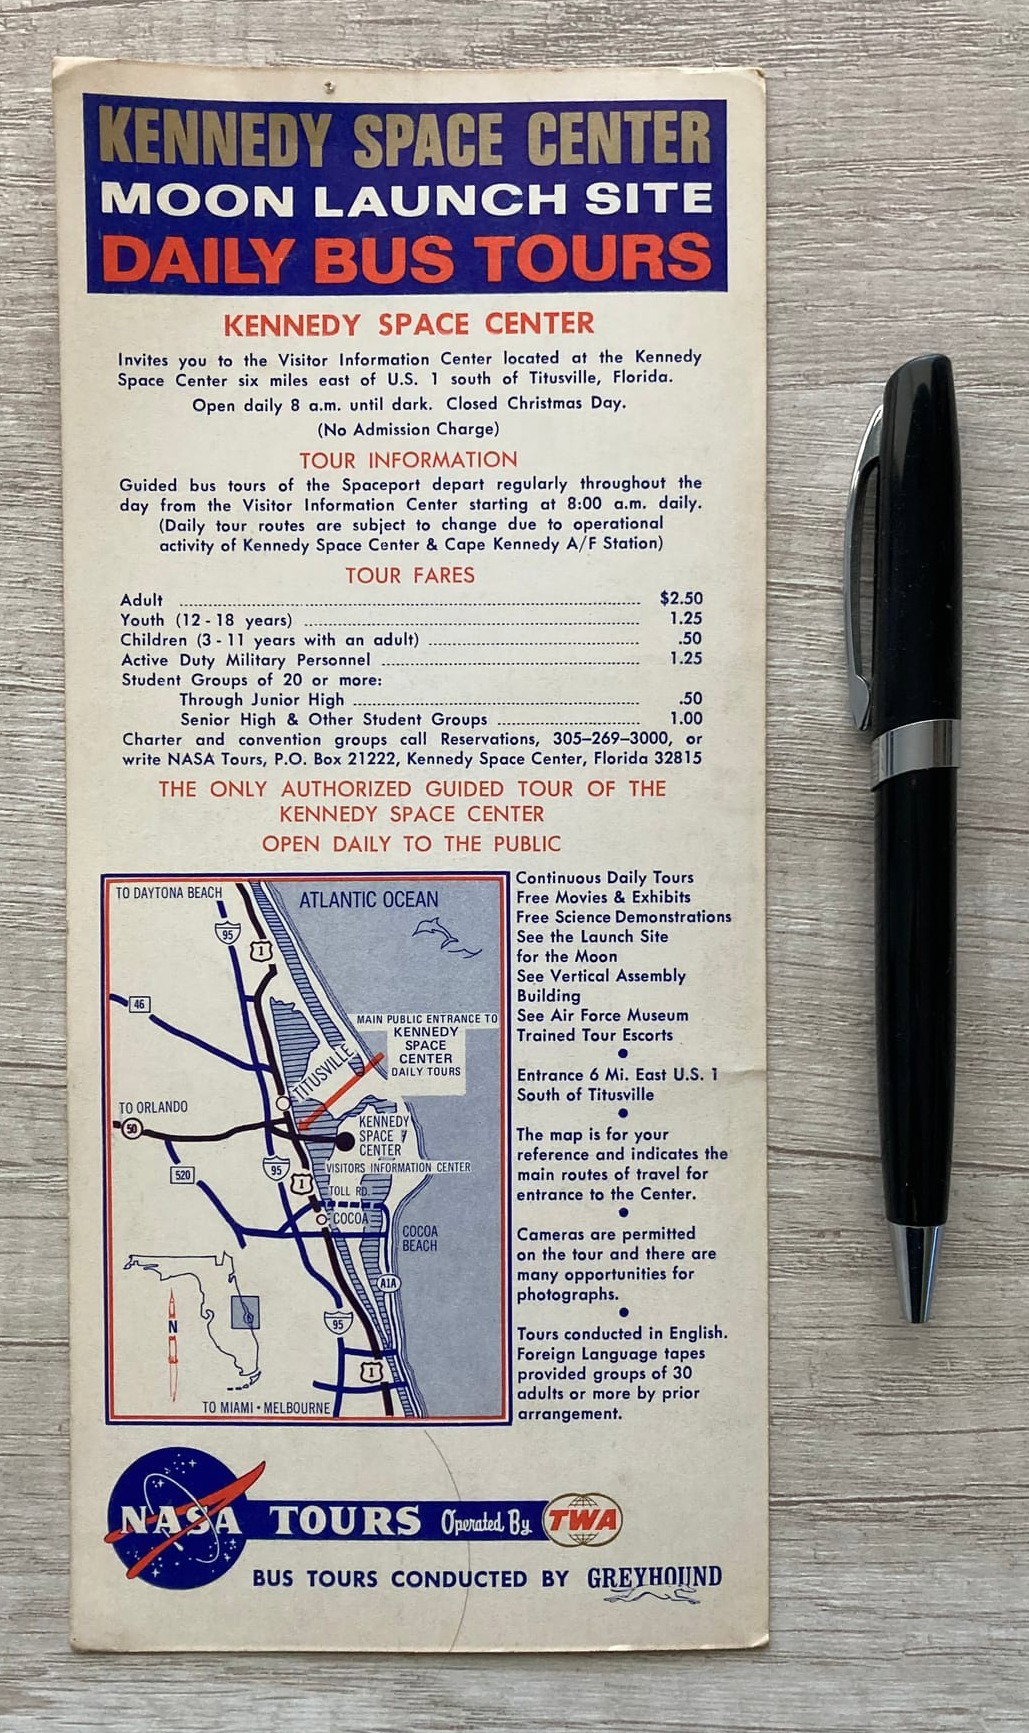 KENNEDY SPACE CENTER
MOON LAUNCH SITE
DAILY BUS TOURS
KENNEDY SPACE CENTER
Invites you to the Visitor Information Center located at the Kennedy
Space Center six miles east of U.S. 1 south of Titusville, Florida.
Open daily 8 a.m. until dark. Closed Christmas Day.
(No Admission Charge)
TOUR INFORMATION
Guided bus tours of the Spaceport depart regularly throughout the
day from the Visitor Information Center starting at 8:00 a.m. daily.
(Daily tour routes are subject to change due to operational
activity of Kennedy Space Center & Cape Kennedy A/F Station)
TOUR FARES
Adult $2.50
Youth (12 - 18 years) 1.25
Children (3 - 11 years with an adult) .50
Active Duty Military Personnel 1.25
Student Groups of 20 or more:
Through Junior High .50
Senior High & Other Student Groups 1.00
Charter and convention groups call Reservations, 305–269–3000, or
write NASA Tours, P.O. Box 21222, Kennedy Space Center, Florida 32815
THE ONLY AUTHORIZED GUIDED TOUR OF THE
KENNEDY SPACE CENTER
OPEN DAILY TO THE PUBLIC
TO DAYTONA BEACH
ATLANTIC OCEAN
95
1
46
MAIN PUBLIC ENTRANCE TO
KENNEDY
SPACE
CENTER
DAILY TOURS
TITUSVILLE
TO ORLANDO
50
KENNEDY
SPACE
CENTER
VISITORS INFORMATION CENTER
520
95
1
TOLL RD.
COCOA
COCOA
BEACH
A1A
N
95
1
TO MIAMI • MELBOURNE
Continuous Daily Tours
Free Movies & Exhibits
Free Science Demonstrations
See the Launch Site
for the Moon
See Vertical Assembly
Building
See Air Force Museum
Trained Tour Escorts
Entrance 6 Mi. East U.S. 1
South of Titusville
The map is for your
reference and indicates the
main routes of travel for
entrance to the Center.
Cameras are permitted
on the tour and there are
many opportunities for
photographs.
Tours conducted in English.
Foreign Language tapes
provided groups of 30
adults or more by prior
arrangement.
NASA TOURS Operated By TWA
BUS TOURS CONDUCTED BY GREYHOUND